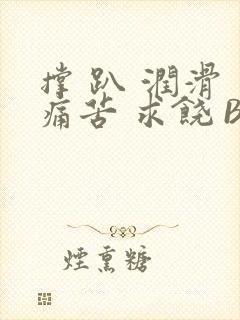 撑 趴 潤滑
痛苦 求饒 B
煙熏糖